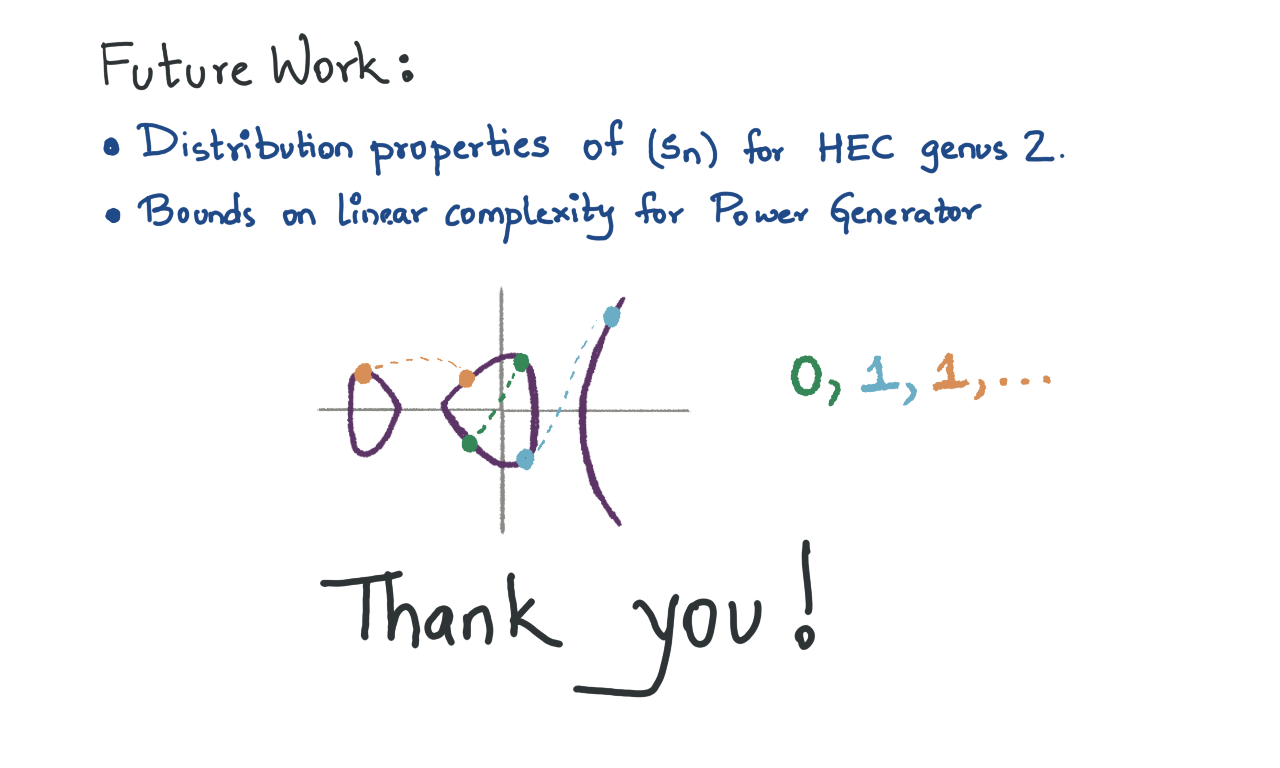 Future Work:
• Distribution properties of (Sn) for HEC genus 2.
• Bounds on Linear complexity for Power Generator
0, 1, 1, ...
Thank you!